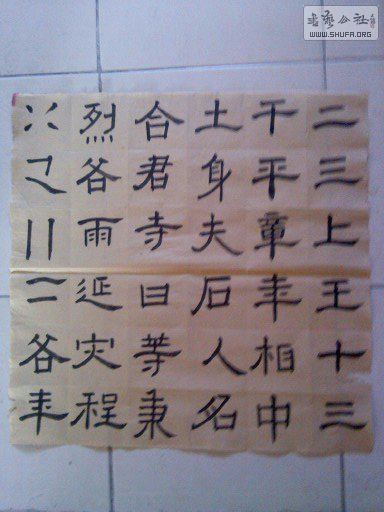 书艺公社
WWW.SHUFA.ORG
二三上王十三
干平章年相中
土身夫石人名
合君寺曰等秉
烈各雨延灾程
二各年